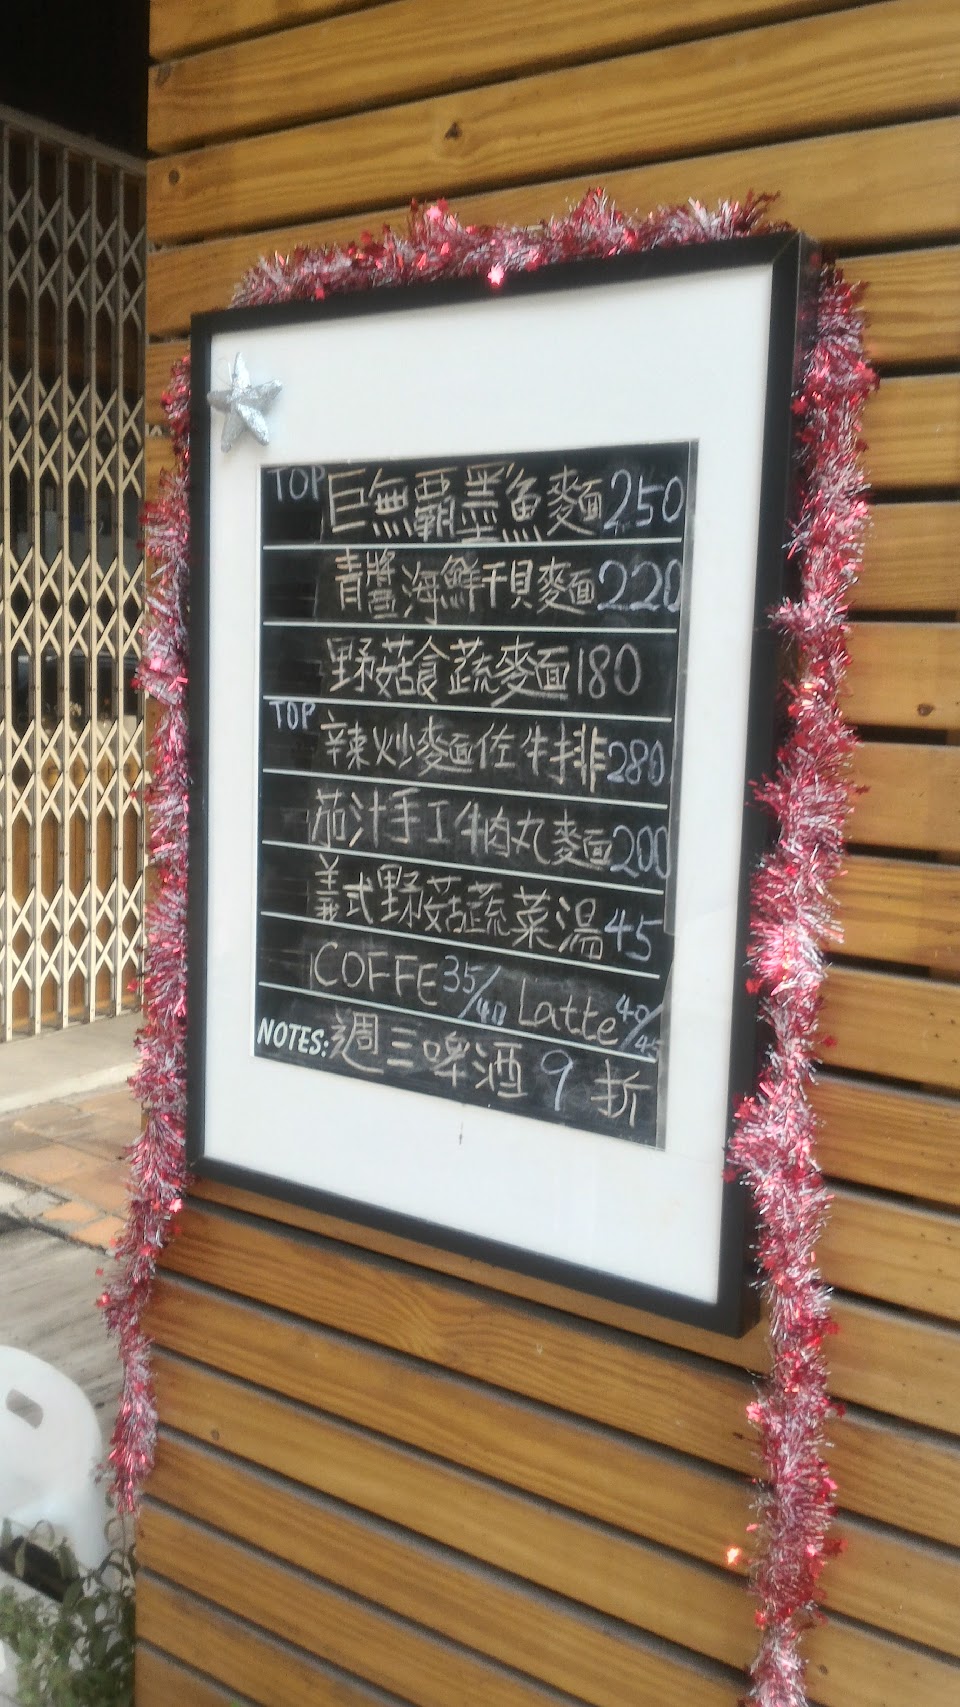 TOP 巨無霸墨魚麵 250
青醬海鮮干貝麵 220
野菇食蔬麥面 180
TOP 辣炒麵佐牛排 280
茄汁手工牛肉丸麥面 200
義式野菇蔬菜湯 45
COFFE 35/40 Latte 40/45
NOTES: 週三啤酒 9 折